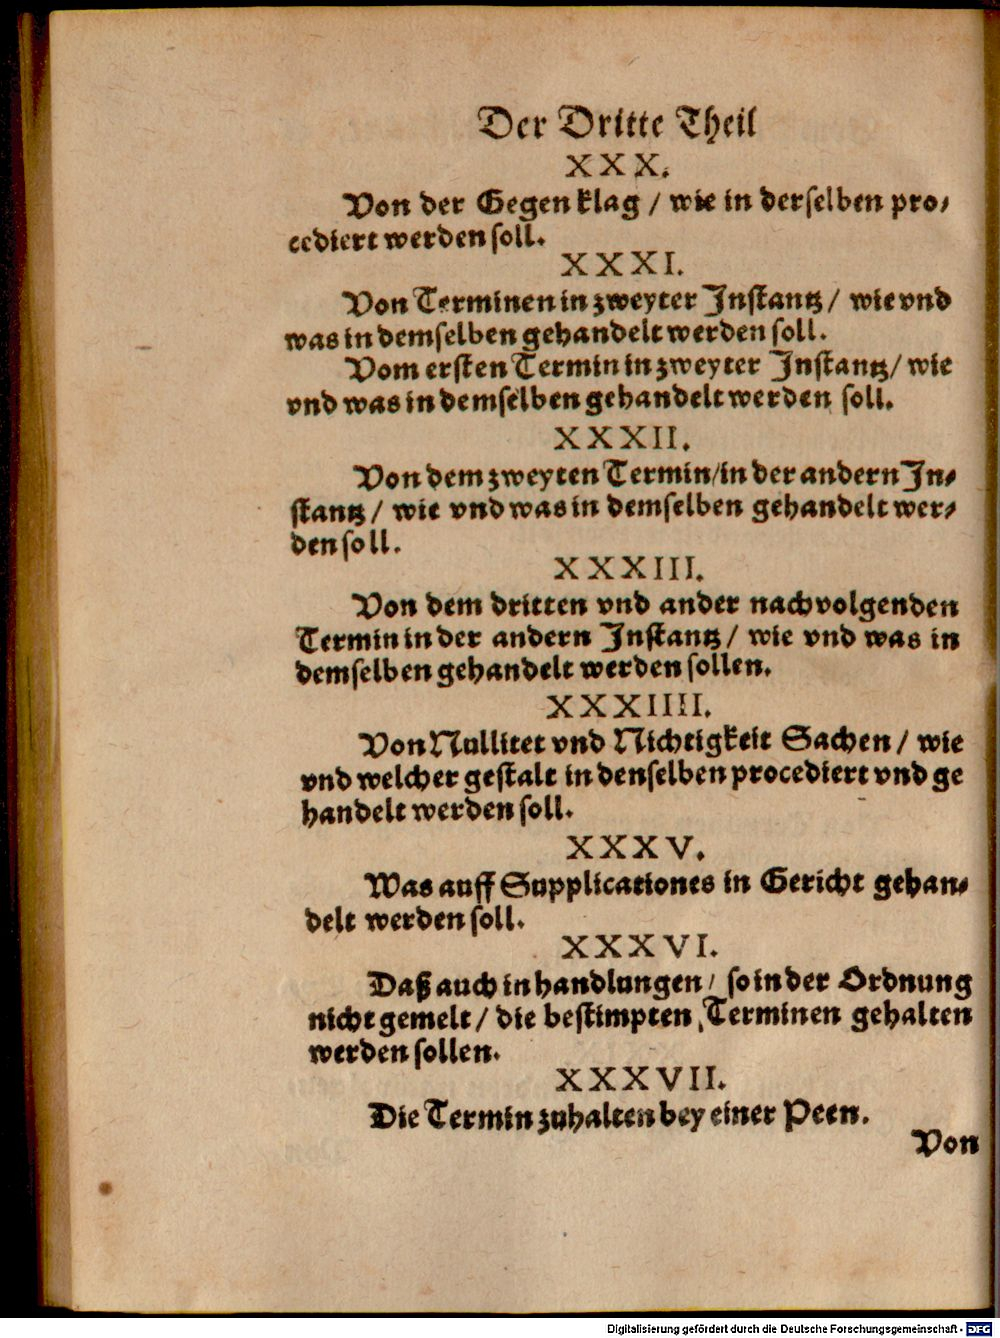 Der Dritte Theil
XXX.
Von der Gegen klag / wie in derselben pro⸗
cediert werden soll.
XXXI.
Von Terminen in zweyter Instantz / wie vnd
was in demselben gehandelt werden soll.
Vom ersten Termin in zweyter Instantz / wie
vnd was in demselben gehandelt werden soll.
XXXII.
Von dem zweyten Termin / in der andern In⸗
stantz / wie vnd was in demselben gehandelt wer⸗
den soll.
XXXIII.
Von dem dritten vnd ander nachvolgenden
Termin in der andern Instantz / wie vnd was in
demselben gehandelt werden sollen.
XXXIIII.
Von Nullitet vnd Nichtigkeit Sachen / wie
vnd welcher gestalt in denselben procediert vnd ge
handelt werden soll.
XXXV.
Was auff Supplicationes in Gericht gehan⸗
delt werden soll.
XXXVI.
Daß auch in handlungen / so in der Ordnung
nicht gemelt / die bestimpten Terminen gehalten
werden sollen.
XXXVII.
Die Termin zuhalten bey einer Peen.
Von
Digitalisierung gefördert durch die Deutsche Forschungsgemeinschaft - DFG